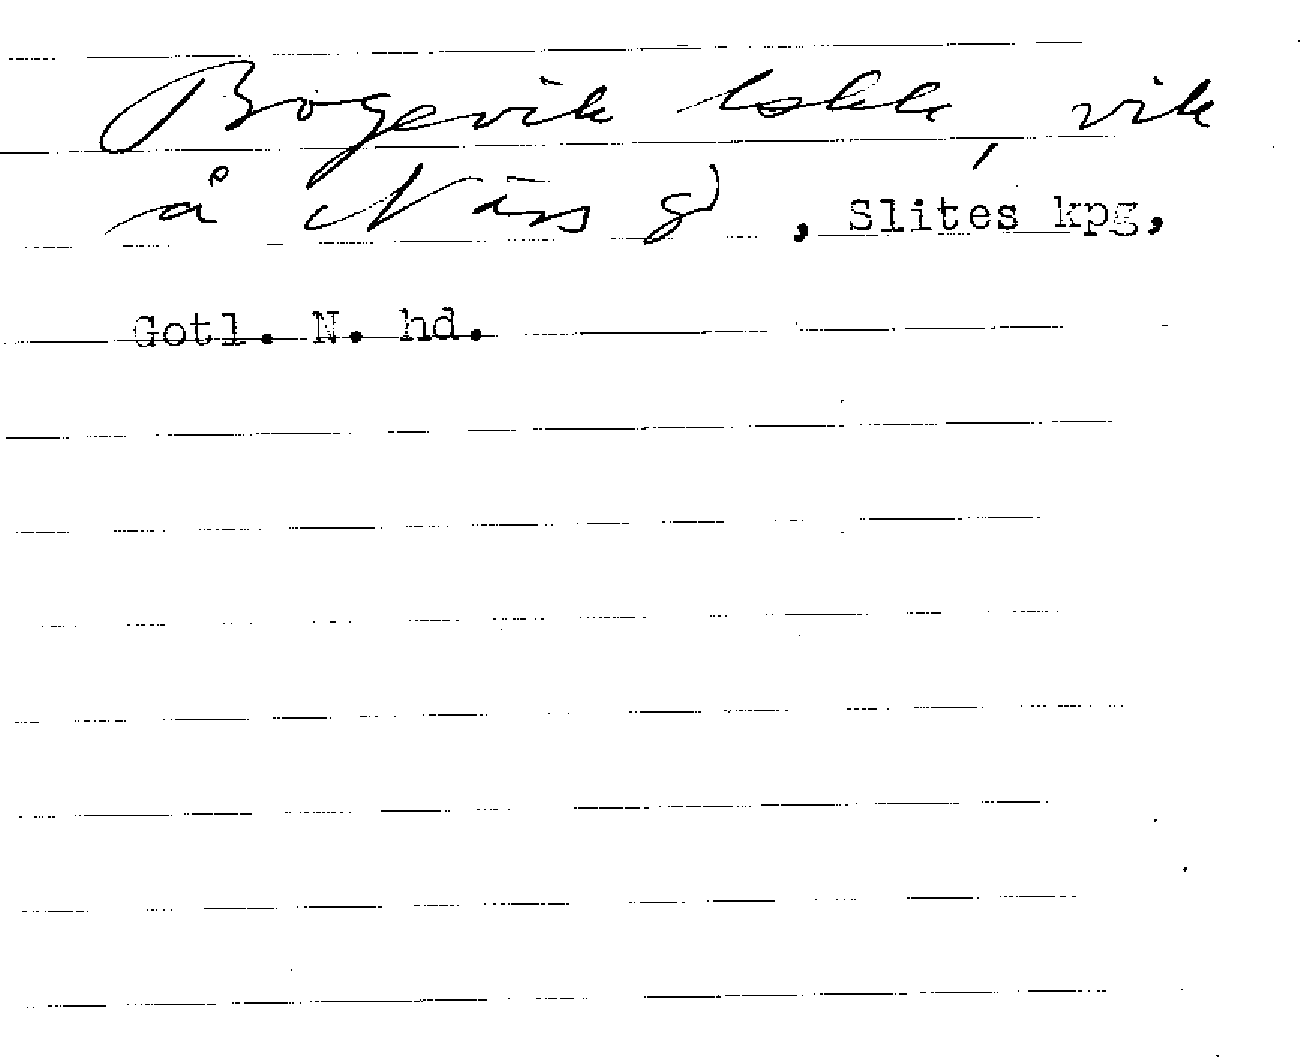 Bogevik lokk, vik
å Näs gd, Slites kpg,
Gotl. N. hd.